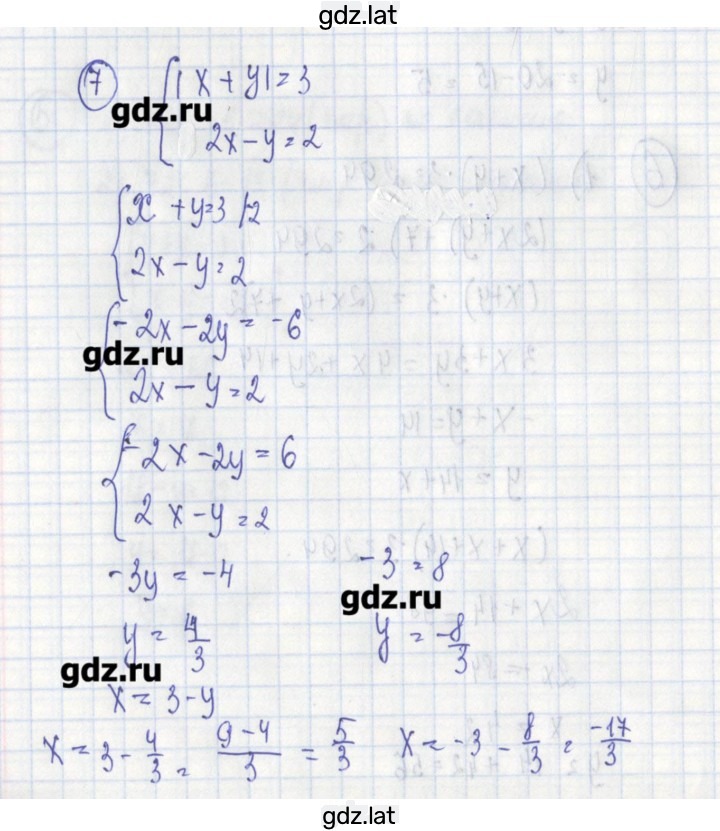 gdz.lat
7 { |x + y| = 3
gdz.ru
2x - y = 2
{ x + y = 3 |-2
2x - y = 2
{ -2x - 2y = -6
gdz.ru
2x - y = 2
{ -2x - 2y = 6
2x - y = 2
-3y = -4 -3 = 8
gdz.ru
y = 4/3 y = -8/3
gdz.ru
x = 3 - y
x = 3 - 4/3 = 9-4/3 = 5/3 x = -3 - 8/3 = -17/3
gdz.lat